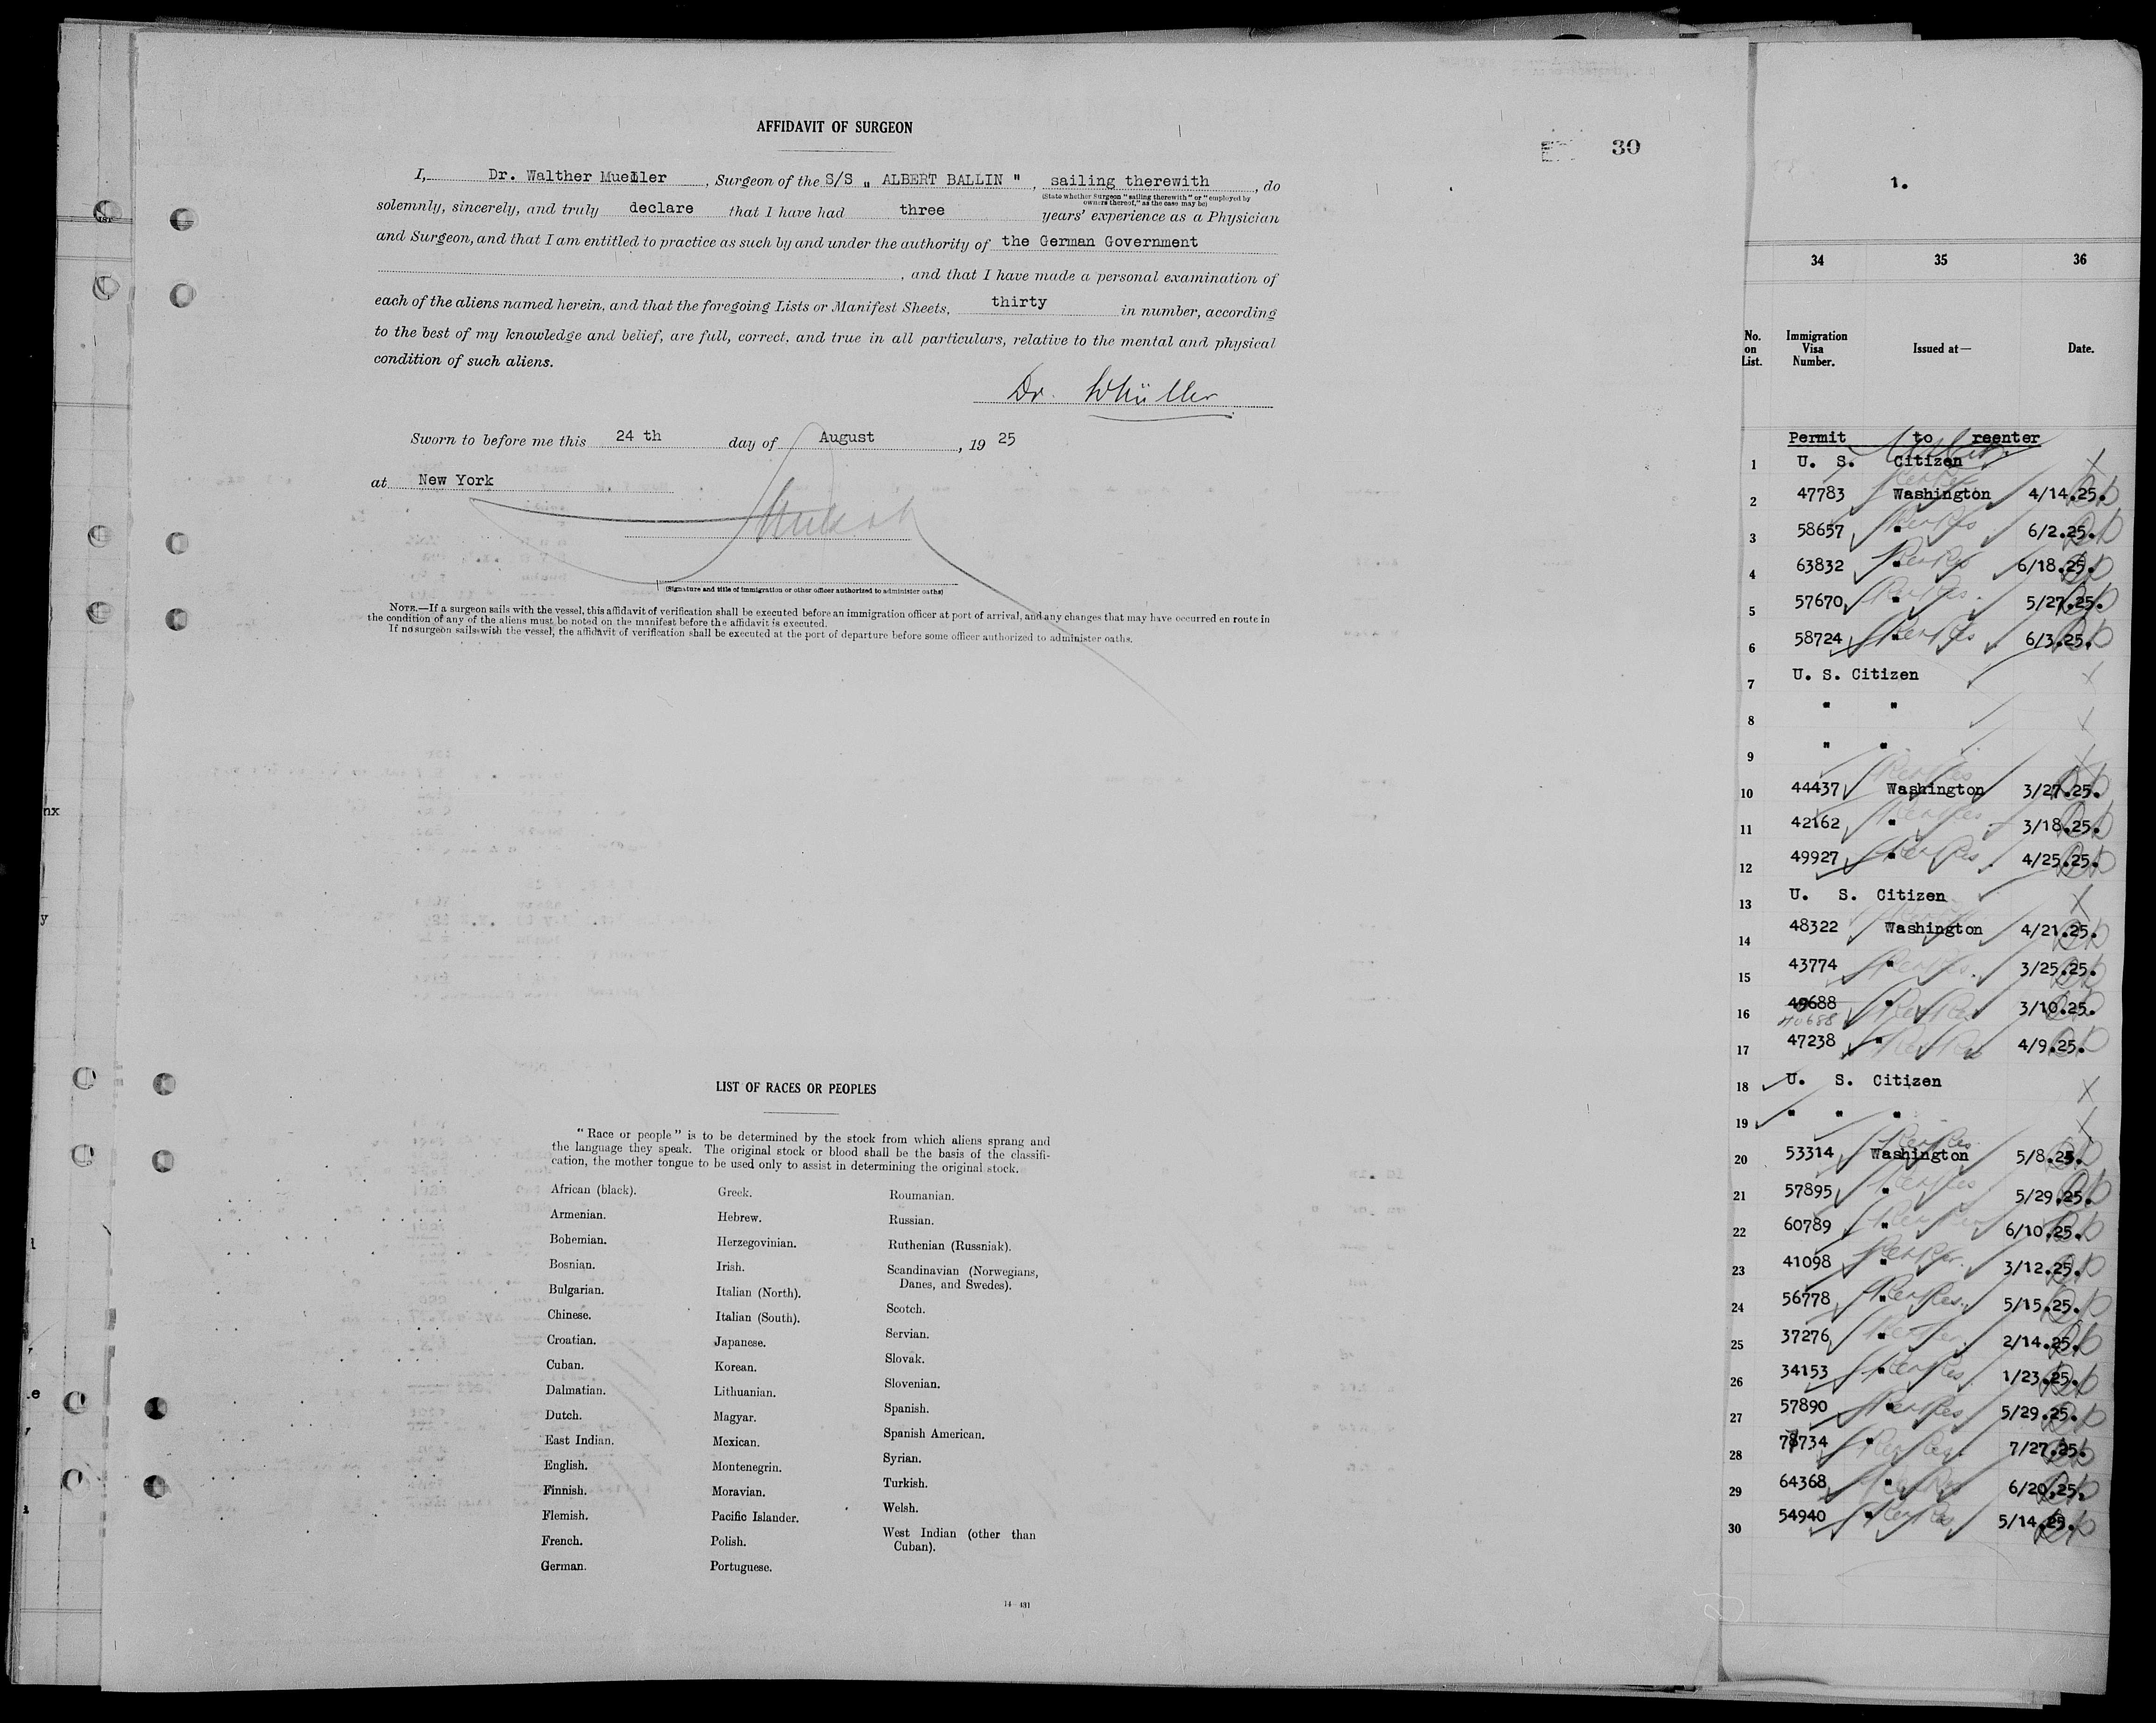 AFFIDAVIT OF SURGEON
30
I, Dr. Walther Mueller, Surgeon of the S/S „ ALBERT BALLIN ", sailing therewith, do
(State whether Surgeon "sailing therewith" or "employed by
owners thereof," as the case may be)
solemnly, sincerely, and truly declare that I have had three years' experience as a Physician
and Surgeon, and that I am entitled to practice as such by and under the authority of the German Government
, and that I have made a personal examination of
each of the aliens named herein, and that the foregoing Lists or Manifest Sheets, thirty in number, according
to the best of my knowledge and belief, are full, correct, and true in all particulars, relative to the mental and physical
condition of such aliens.
Dr. WMüller
Sworn to before me this 24 th day of August, 19 25
at New York
(Signature and title of immigration or other officer authorized to administer oaths)
NOTE.—If a surgeon sails with the vessel, this affidavit of verification shall be executed before an immigration officer at port of arrival, and any changes that may have occurred en route in
the condition of any of the aliens must be noted on the manifest before the affidavit is executed.
If no surgeon sails with the vessel, the affidavit of verification shall be executed at the port of departure before some officer authorized to administer oaths.
LIST OF RACES OR PEOPLES
"Race or people" is to be determined by the stock from which aliens sprang and
the language they speak. The original stock or blood shall be the basis of the classifi-
cation, the mother tongue to be used only to assist in determining the original stock.
African (black).
Armenian.
Bohemian.
Bosnian.
Bulgarian.
Chinese.
Croatian.
Cuban.
Dalmatian.
Dutch.
East Indian.
English.
Finnish.
Flemish.
French.
German.
Greek.
Hebrew.
Herzegovinian.
Irish.
Italian (North).
Italian (South).
Japanese.
Korean.
Lithuanian.
Magyar.
Mexican.
Montenegrin.
Moravian.
Pacific Islander.
Polish.
Portuguese.
Roumanian.
Russian.
Ruthenian (Russniak).
Scandinavian (Norwegians,
Danes, and Swedes).
Scotch.
Servian.
Slovak.
Slovenian.
Spanish.
Spanish American.
Syrian.
Turkish.
Welsh.
West Indian (other than
Cuban).
14—431
1.
34 35 36
No. on List. Immigration Visa Number. Issued at— Date.
Permit to reenter
1 U. S. Citizen
2 47783 Washington 4/14.25.
3 58657 " 6/2.25.
4 63832 " 6/18.25.
5 57670 " 5/27.25.
6 58724 " 6/3.25.
7 U. S. Citizen
8 " "
9 " "
10 44437 Washington 3/27.25.
11 42162 " 3/18.25.
12 49927 " 4/25.25.
13 U. S. Citizen
14 48322 Washington 4/21.25.
15 43774 " 3/25.25.
16 40688 " 3/10.25.
40688
17 47238 " 4/9.25.
18 U. S. Citizen
19 " " "
20 53314 Washington 5/8.25.
21 57895 " 5/29.25.
22 60789 " 6/10.25.
23 41098 " 3/12.25.
24 56778 " 5/15.25.
25 37276 " 2/14.25.
26 34153 " 1/23.25.
27 57890 " 5/29.25.
28 78734 " 7/27.25.
29 64368 " 6/20.25.
30 54940 " 5/14.25.